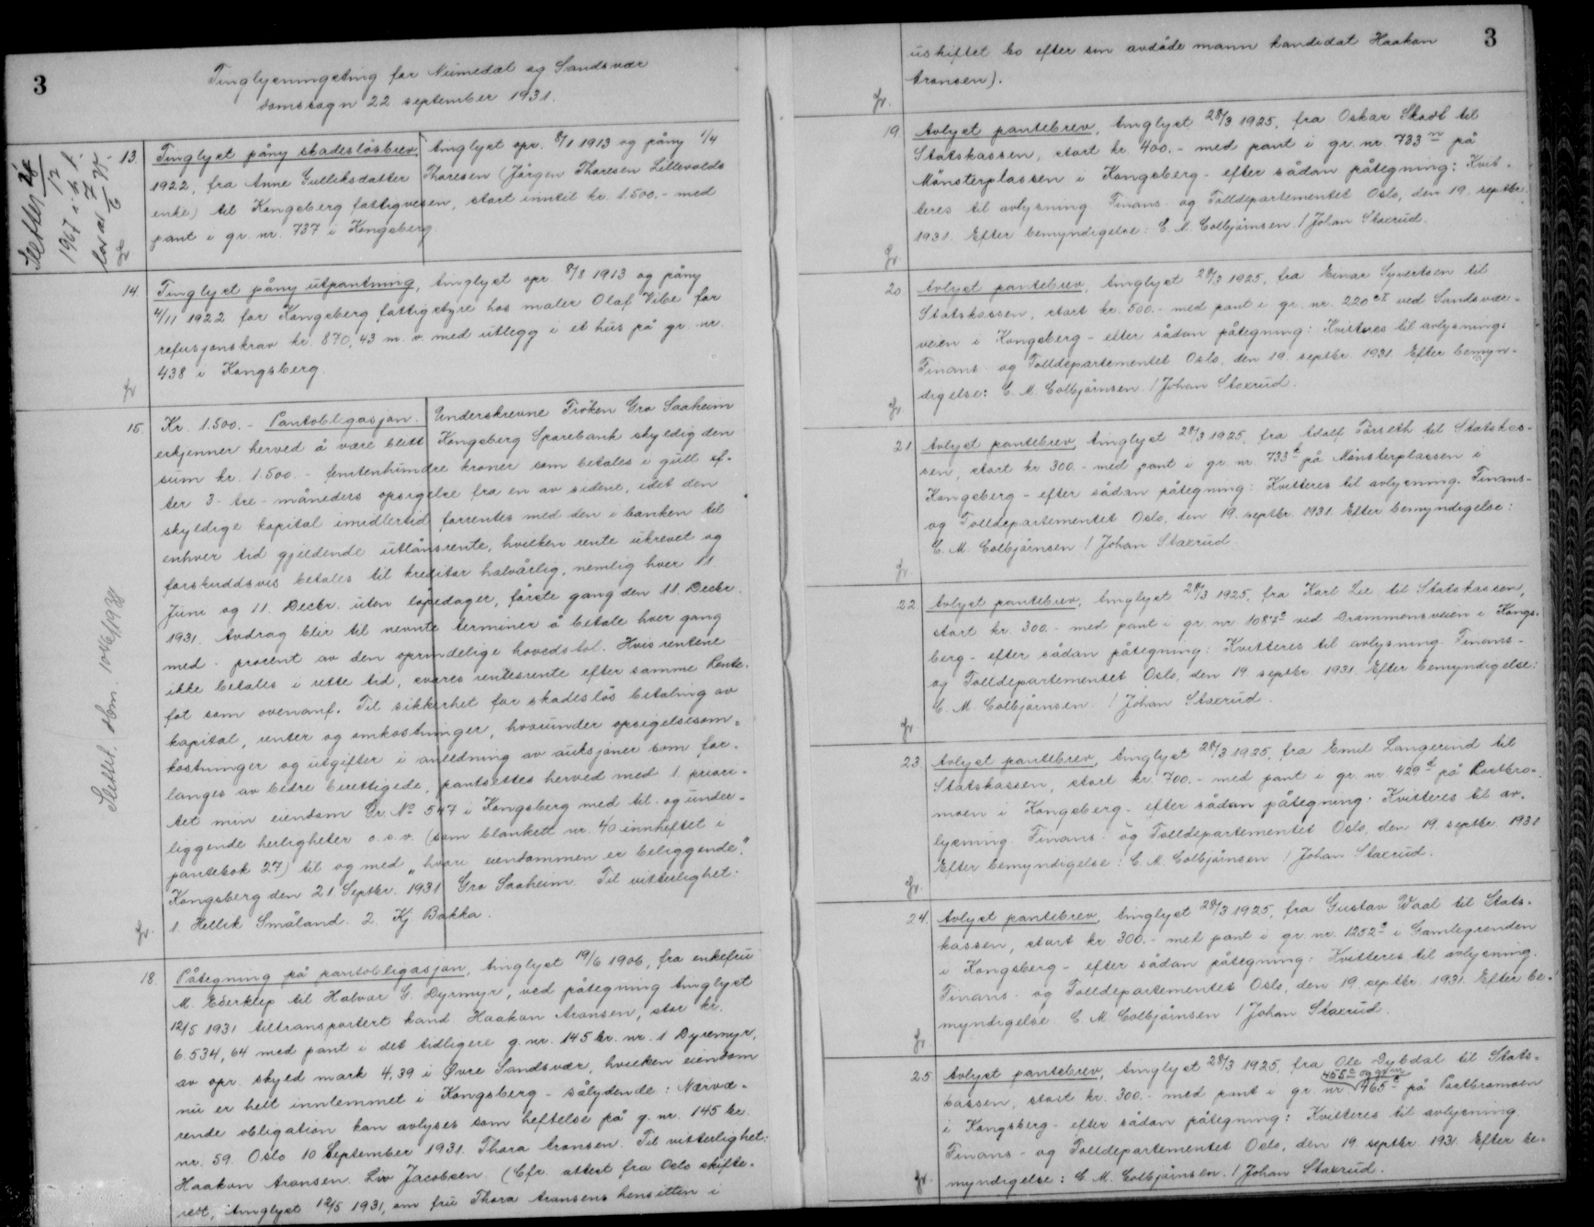 3
Tinglysningsting for Numedal og Sandsvær
domssogn 22 september 1931.
13. Tinglyst påny skadesløsbrev, tinglyst opr. 8/1 1913 og påny 1/4
1922, fra Anne Gulliksdatter Thoresen (Jørgen Thoresen Lillevolds
enke) til Kongsberg fattigvesen, stort inntil kr. 1500.- med
pant i gr. nr. 737 i Kongsberg.
14. Tinglyst påny utpantning, tinglyst opr. 8/8 1913 og påny
4/11 1922 for Kongsberg fattigstyre hos maler Olaf Vibe for
refusjonskrav kr. 870,43 m. v. med utlegg i et hus på gr. nr.
438 i Kongsberg.
15. Kr. 1.500.- Pantobligasjon. Underskrevne Frøken Gro Saaheim
erkjenner herved å være blitt Kongsberg Sparebank skyldig den
sum kr. 1.500.- femtenhundre kroner som betales i gull ef-
ter 3- tre- måneders opsigelse fra en av sidene, idet den
skyldige kapital imidlertid forrentes med den i banken til
enhver tid gjeldende utlånsrente, hvilken rente ukrevet og
forskuddsvis betales til kreditor halvårlig, nemlig hver 11.
Juni og 11. Decbr. uten løpedager, første gang den 11. Decbr.
1931. Avdrag blir til nevnte terminer å betale hver gang
med - procent av den oprindelige hovedstol. Hvis rentene
ikke betales i rette tid, svares rentesrente efter samme Rente-
fot som ovenanf. Til sikkerhet for skadesløs betaling av
kapital, renter og omkostninger, hvorunder opsigelsesom-
kostninger og utgifter i anledning av auksjoner som for-
langes av bedre berettigede, pantsettes herved med 1. priori-
tet min eiendom Gr. No 547 i Kongsberg med til- og under-
liggende herligheter o.s.v. (som blankett nr. 40 innheftet i
pantebok 27) til og med "hvori eiendommen er beliggende".
Kongsberg den 21 Septbr. 1931 Gro Saaheim. Til vitterlighet:
1. Hellik Småland. 2. Kj. Bakka.
Slettet dbnr. 1046/1938
18. Påtegning på pantobligasjon, tinglyst 19/6 1906, fra enkefru
M. Eberklep til Halvor G. Dyrmyr, ved påtegning tinglyst
12/5 1931 tiltransportert kand. Haakon Aronsen, stor kr.
6.534,64 med pant i det tidligere g. nr. 145 br. nr. 1 Dyremyr,
av opr. skyld mark 4,39 i Øvre Sandsvær, hvilken eiendom
nu er helt innlemmet i Kongsberg - sålydende: Nærvæ-
rende obligation kan avlyses som heftelse på g. nr. 145 br.
nr. 59. Oslo 10 September 1931. Thora Aronsen. Til vitterlighet:
Haakon Aronsen. Liv Jacobsen. (Cfr. attest fra Oslo skifte-
rett, tinglyst 12/5 1931, om fru Thora Aronsens hensitten i
3
uskiftet bo efter sin avdøde mann kandidat Haakon
Aronsen).
19. Avlyst pantebrev, tinglyst 28/3 1925, fra Oskar Skodt til
Statskassen, stort kr. 400.- med pant i gr. nr. 733 på
Mønsterplassen i Kongsberg - efter sådan påtegning: Kvit-
teres til avlysning. Finans- og Tolldepartementet Oslo, den 19. septbr.
1931. Efter bemyndigelse: C. M. Colbjørnsen / Johan Staxrud.
20. Avlyst pantebrev, tinglyst 28/3 1925, fra Einar Syvertsen til
Statskassen, stort kr. 500.- med pant i gr. nr. 220 ved Sandsvær-
veien i Kongsberg - efter sådan påtegning: Kvitteres til avlysning.
Finans- og Tolldepartementet Oslo, den 19. septbr. 1931. Efter bemyn-
digelse: C. M. Colbjørnsen / Johan Staxrud.
21. Avlyst pantebrev, tinglyst 28/3 1925, fra Adolf Førseth til Statskas-
sen, stort kr. 300.- med pant i gr. nr. 733 på Mønsterplassen i
Kongsberg - efter sådan påtegning: Kvitteres til avlysning. Finans-
og Tolldepartementet Oslo, den 19. septbr. 1931. Efter bemyndigelse:
C. M. Colbjørnsen / Johan Staxrud.
22. Avlyst pantebrev, tinglyst 28/3 1925, fra Karl Lie til Statskassen,
stort kr. 300.- med pant i gr. nr. 1087 ved Drammensveien i Kongs-
berg - efter sådan påtegning: Kvitteres til avlysning. Finans-
og Tolldepartementet Oslo, den 19. septbr. 1931. Efter bemyndigelse:
C. M. Colbjørnsen / Johan Staxrud.
23. Avlyst pantebrev, tinglyst 28/3 1925, fra Emil Langerind til
Statskassen, stort kr. 700.- med pant i gr. nr. 429 på
moen i Kongsberg - efter sådan påtegning: Kvitteres til av-
lysning. Finans- og Tolldepartementet Oslo, den 19. septbr. 1931
Efter bemyndigelse: C. M. Colbjørnsen / Johan Staxrud.
24. Avlyst pantebrev, tinglyst 28/3 1925, fra Gustav Waal til Stats-
kassen, stort kr. 300.- med pant i gr. nr. 1252 i Gamlegrenden
i Kongsberg - efter sådan påtegning: Kvitteres til avlysning.
Finans- og Tolldepartementet Oslo, den 19. septbr. 1931. Efter be-
myndigelse C. M. Colbjørnsen / Johan Staxrud.
25. Avlyst pantebrev, tinglyst 28/3 1925, fra Ole Dybdal til Stats-
kassen, stort kr. 300.- med pant i gr. nr. 465 på
i Kongsberg - efter sådan påtegning: Kvitteres til avlysning.
Finans- og Tolldepartementet Oslo, den 19. septbr. 1931. Efter be-
myndigelse: C. M. Colbjørnsen / Johan Staxrud.